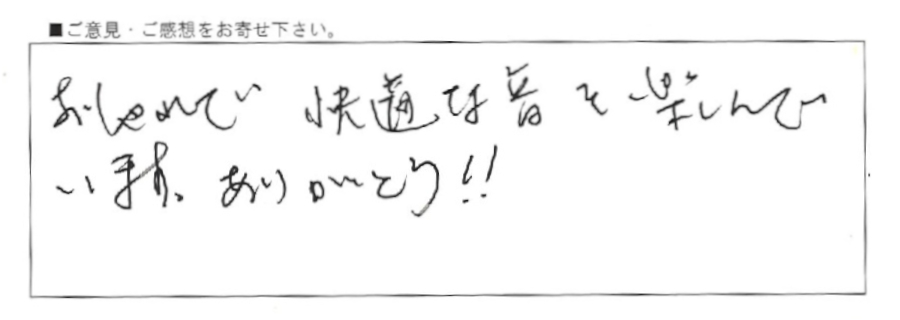 ■ご意見・ご感想をお寄せ下さい。
おしゃれで 快適な音を楽しんで
います。ありがとう!!